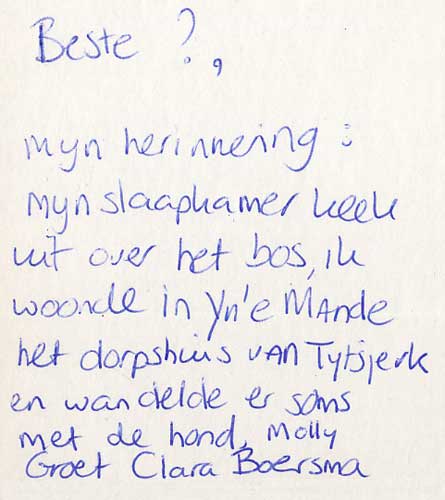 Beste ?,
mijn herinnering :
mijn slaapkamer keek
uit over het bos, ik
woonde in Yn'e Mande
het dorpshuis van Tytsjerk
en wandelde er soms
met de hond, Molly
Groet Clara Boersma